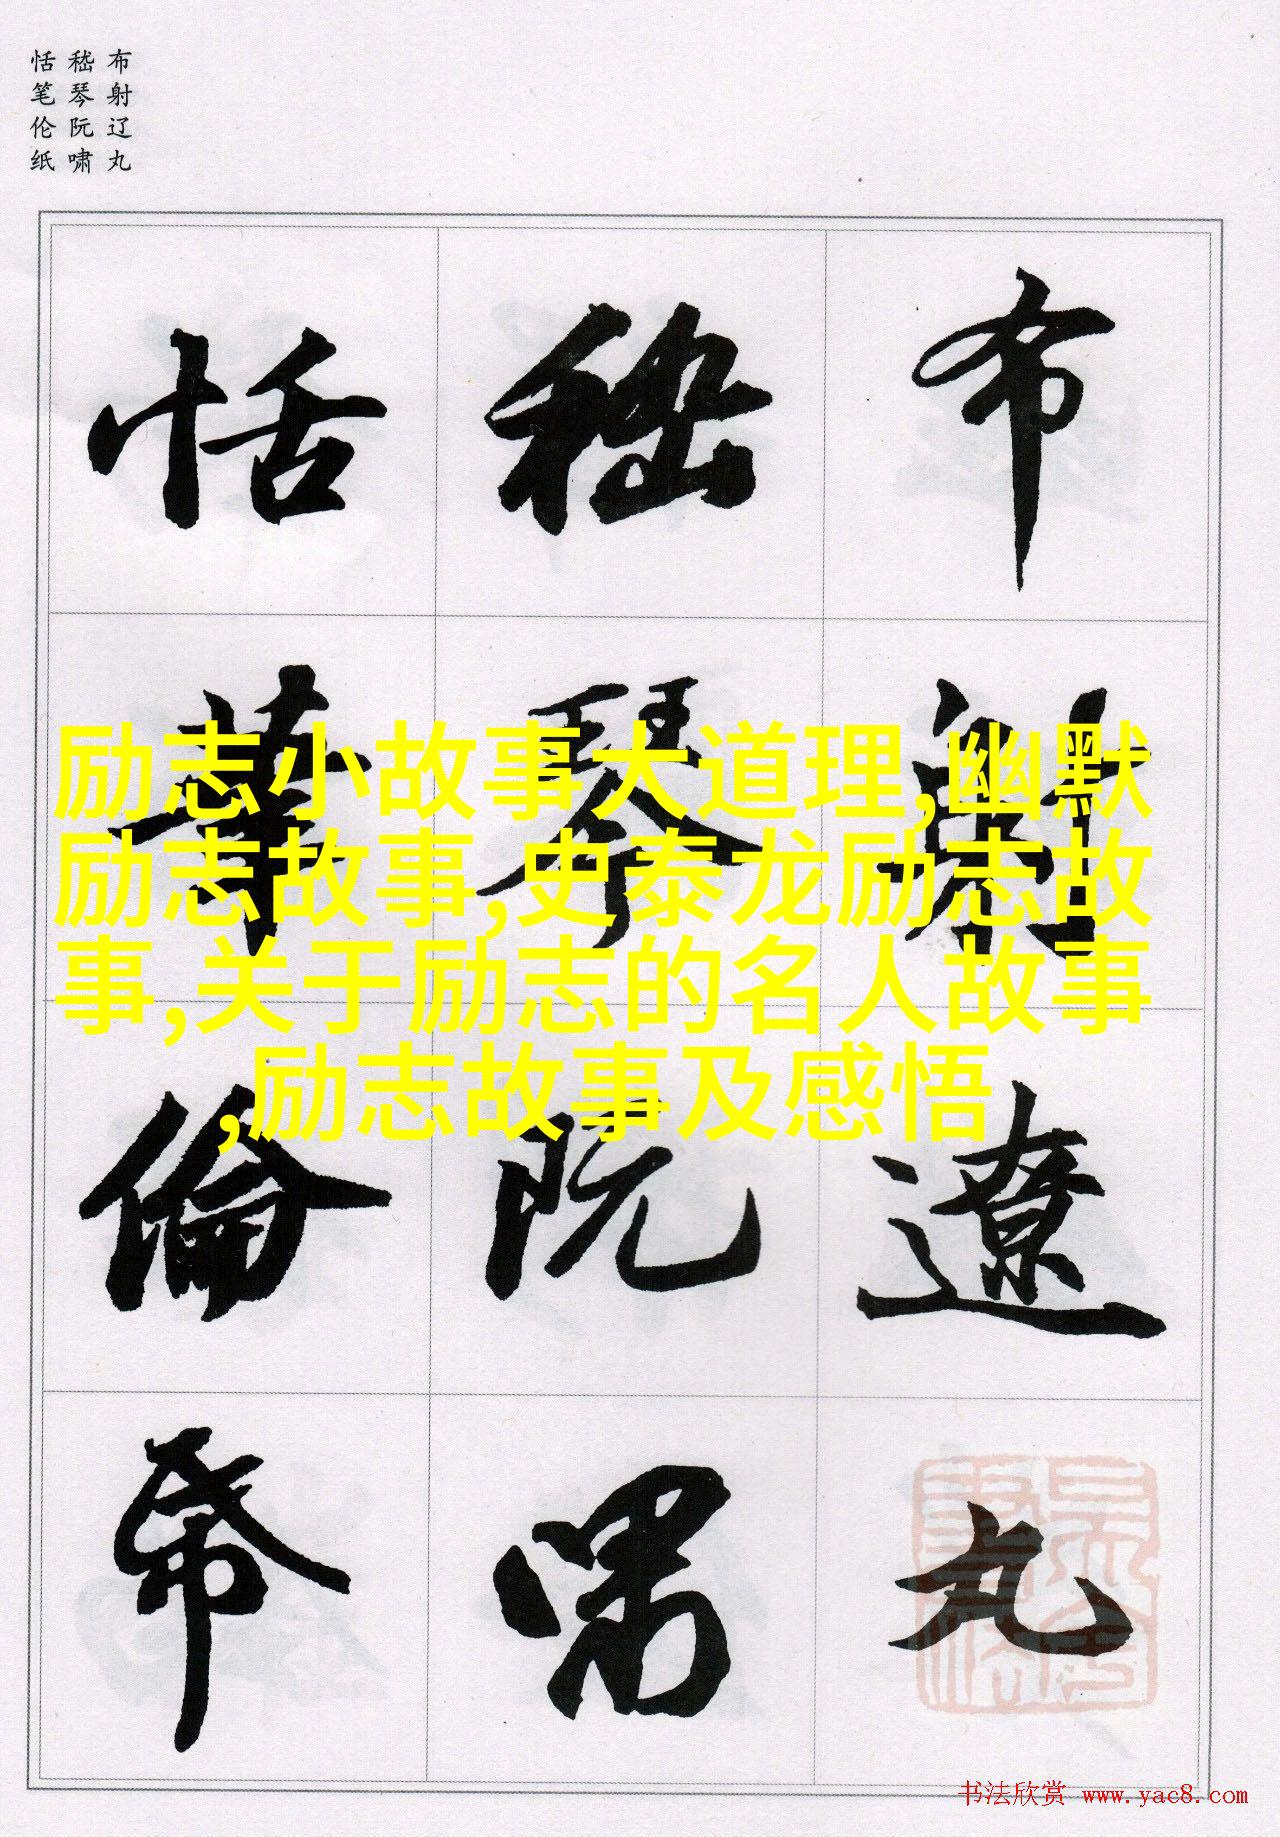 布射辽丸
嵇琴阮啸
恬笔伦纸
布
射
遼
丸
嵇
琴
阮
嘯
恬
筆
倫
帋
励志小故事大道理,幽默
励志故事,史泰龙励志故
事,关于励志的名人故事
,励志故事及感悟
书法欣赏 www.yac8.com